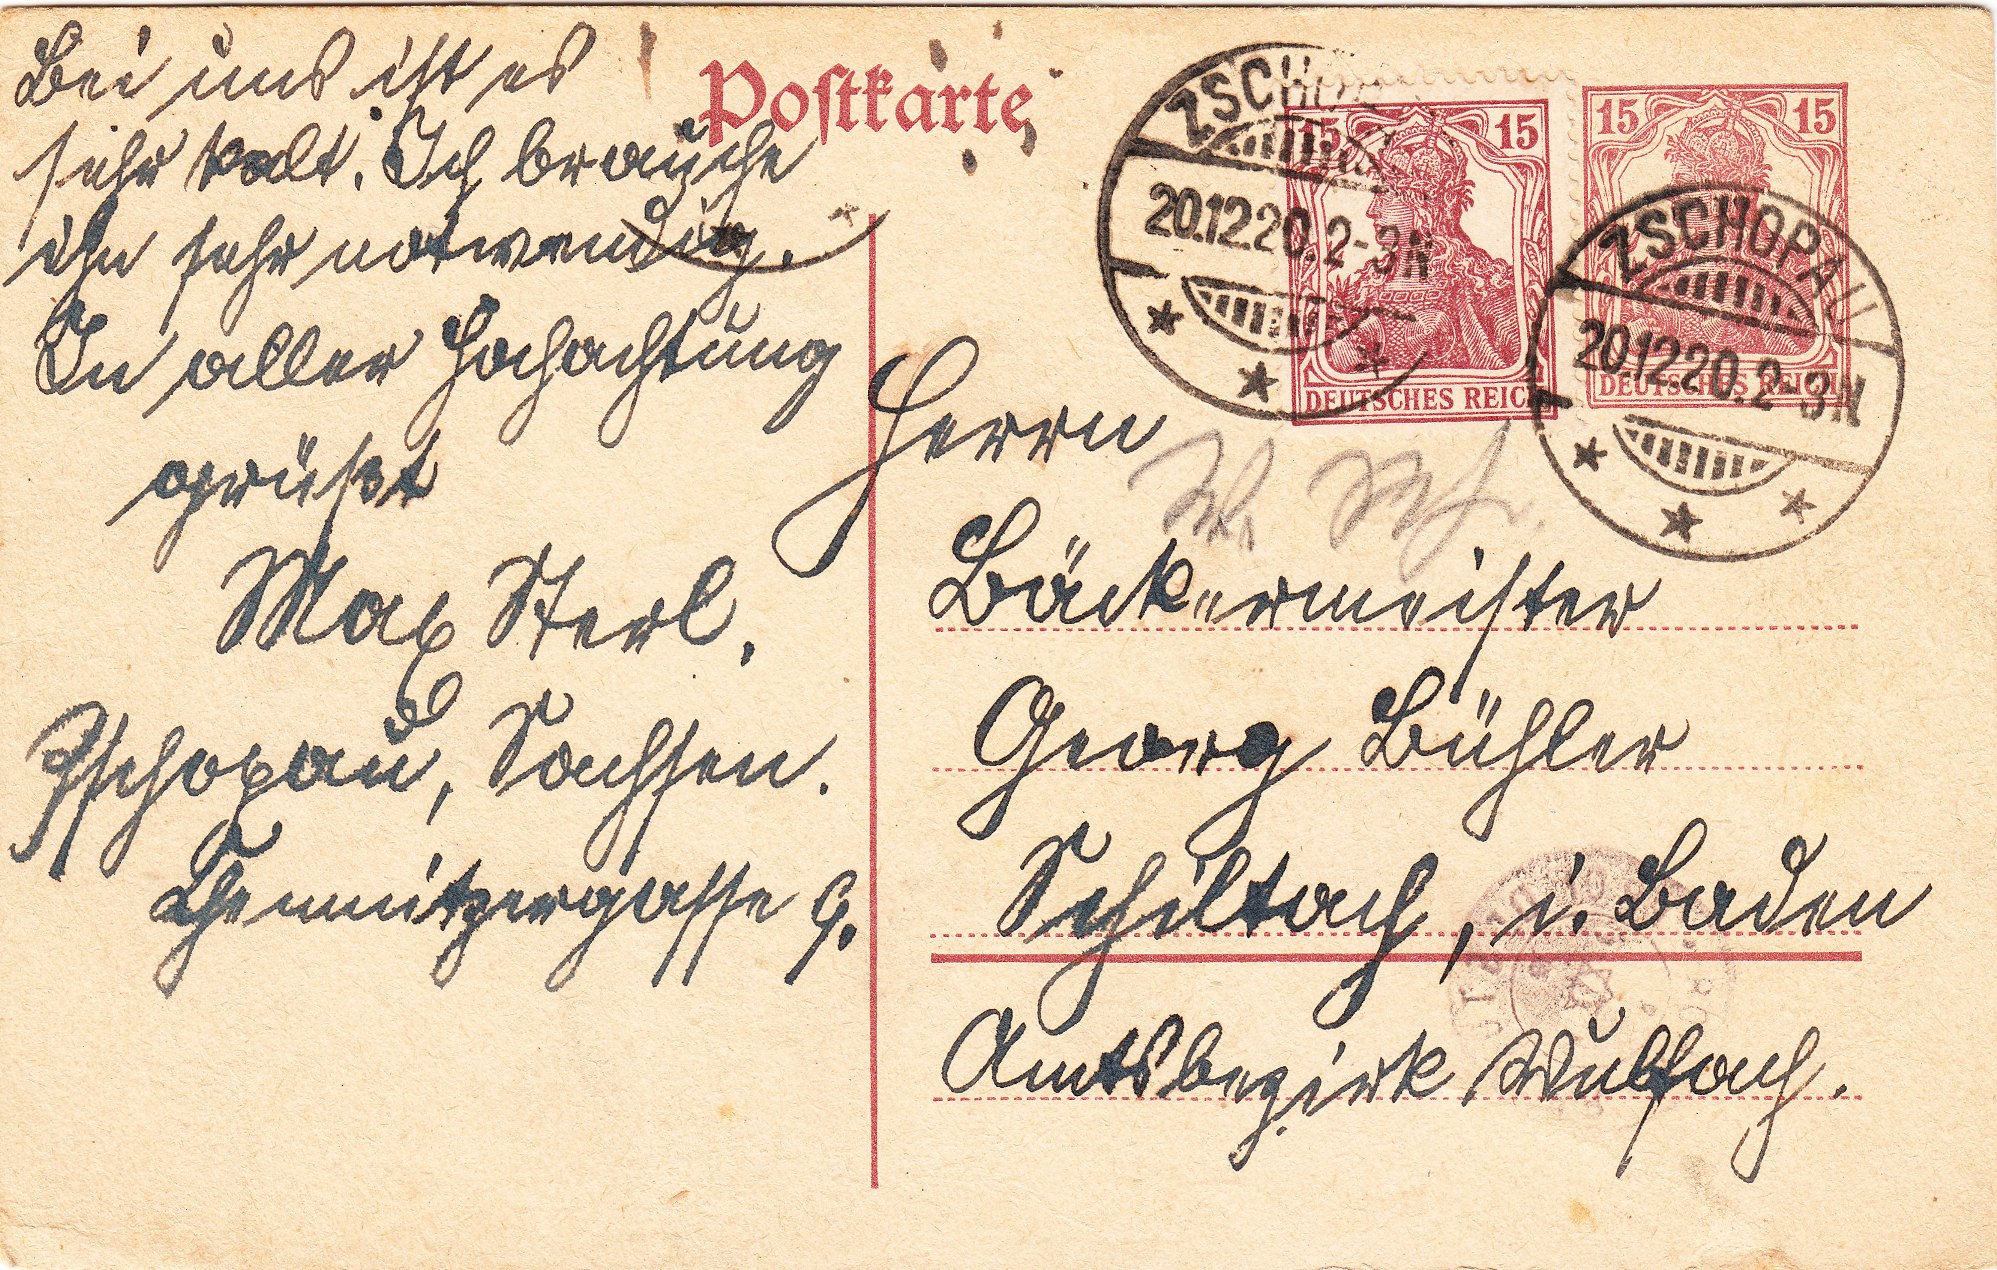 Bei uns ist es
sehr kalt. Ich brauche
ihn sehr notwendig.
In aller Hochachtung
grüßt
Max Sterl.
Zschopau, Sachsen.
Chemnitzergasse 9.
Postkarte
15 15
DEUTSCHES REICH
15 15
DEUTSCHES REICH
ZSCHOPAU
20.12.20. 2-3N
ZSCHOPAU
20.12.20. 2-3N
Herrn
Bäckermeister
Georg Bühler
Schiltach, i. Baden
Amtsbezirk Wolfach.